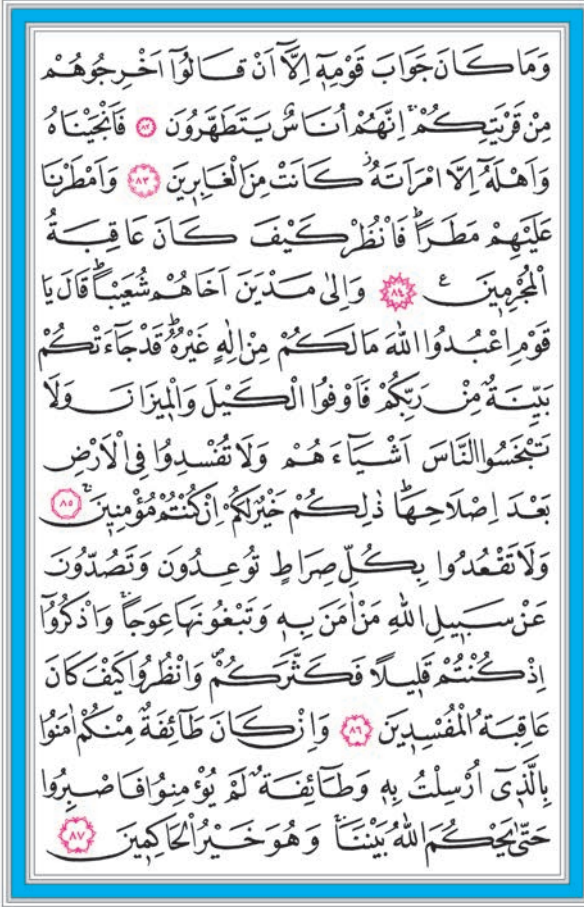 وَمَا كَانَ جَوَابَ قَوْمِهٖٓ اِلَّٓا اَنْ قَالُٓوا اَخْرِجُوهُمْ
مِنْ قَرْيَتِكُمْۚ اِنَّهُمْ اُنَاسٌ يَتَطَهَّرُونَ ﴿٨٢﴾ فَاَنْجَيْنَاهُ
وَاَهْلَهُٓ اِلَّا امْرَاَتَهُۘ كَانَتْ مِنَ الْغَابِرٖينَ ﴿٨٣﴾ وَاَمْطَرْنَا
عَلَيْهِمْ مَطَرًاۜ فَانْظُرْ كَيْفَ كَانَ عَاقِبَةُ
الْمُجْرِمٖينَ ع ﴿٨٤﴾ وَاِلٰى مَدْيَنَ اَخَاهُمْ شُعَيْبًاۜ قَالَ يَا
قَوْمِ اعْبُدُوا اللّٰهَ مَا لَكُمْ مِنْ اِلٰهٍ غَيْرُهُۜ قَدْ جَٓاءَتْكُمْ
بَيِّنَةٌ مِنْ رَبِّكُمْ فَاَوْفُوا الْكَيْلَ وَالْمٖيزَانَ وَلَا
تَبْخَسُوا النَّاسَ اَشْيَٓاءَهُمْ وَلَا تُفْسِدُوا فِي الْاَرْضِ
بَعْدَ اِصْلَاحِهَاۜ ذٰلِكُمْ خَيْرٌ لَكُمْ اِنْ كُنْتُمْ مُؤْمِنٖينَۚ ﴿٨٥﴾
وَلَا تَقْعُدُوا بِكُلِّ صِرَاطٍ تُوعِدُونَ وَتَصُدُّونَ
عَنْ سَبٖيلِ اللّٰهِ مَنْ اٰمَنَ بِهٖ وَتَبْغُونَهَا عِوَجًاۚ وَاذْكُرُٓوا
اِذْ كُنْتُمْ قَلٖيلًا فَكَثَّرَكُمْۖ وَانْظُرُوا كَيْفَ كَانَ
عَاقِبَةُ الْمُفْسِدٖينَ ﴿٨٦﴾ وَاِنْ كَانَ طَٓائِفَةٌ مِنْكُمْ اٰمَنُوا
بِالَّذٖٓي اُرْسِلْتُ بِهٖ وَطَٓائِفَةٌ لَمْ يُؤْمِنُوا فَاصْبِرُوا
حَتّٰى يَحْكُمَ اللّٰهُ بَيْنَنَاۚ وَهُوَ خَيْرُ الْحَاكِمٖينَ ﴿٨٧﴾